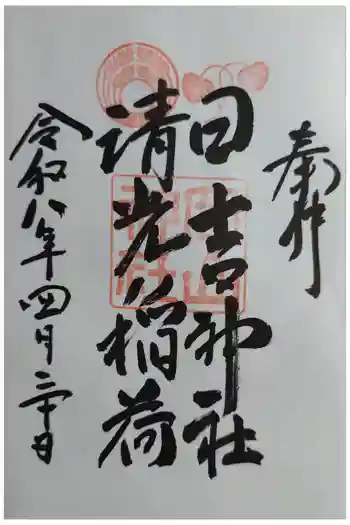 奉拝
日吉神社
清光稲荷
令和八年四月二十日